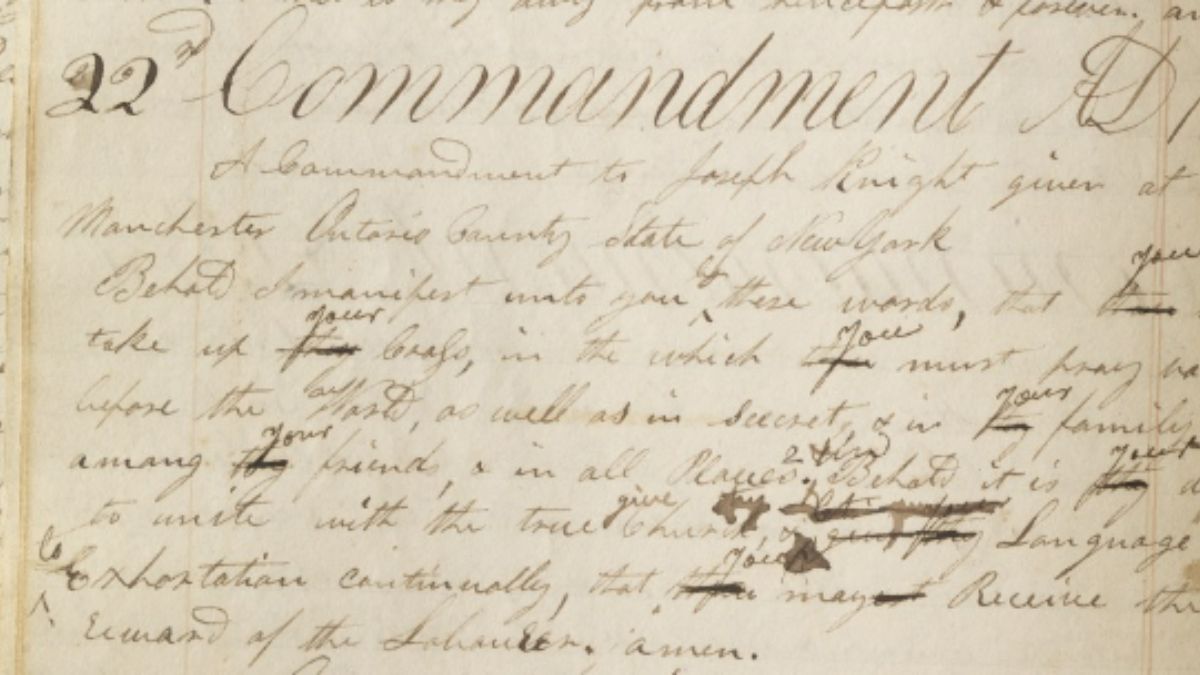 22nd Commandment AD
A Commandment to Joseph Knight given at
Manchester Ontario County State of New York
you
Behold I manifest unto you by these words, that thou
your you
take up thy Cross, in the which thou must pray
your
before the World, as well as in seecret, & in thy family
your 2 & in your
among thy friends, & in all Places. Behold it is thy
give thy
to unite with the true Church, & give thy Language
to you
Exhortation continually, that thou mayest Receive the
reward of the Labourer. amen.